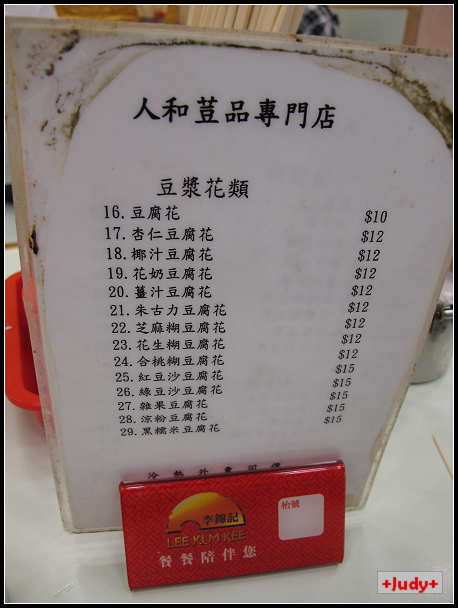 人和荳品專門店
豆漿花類
16. 豆腐花 $10
17. 杏仁豆腐花 $12
18. 椰汁豆腐花 $12
19. 花奶豆腐花 $12
20. 薑汁豆腐花 $12
21. 朱古力豆腐花 $12
22. 芝麻糊豆腐花 $12
23. 花生糊豆腐花 $12
24. 合桃糊豆腐花 $12
25. 紅豆沙豆腐花 $15
26. 綠豆沙豆腐花 $15
27. 雜果豆腐花 $15
28. 涼粉豆腐花 $15
29. 黑糯米豆腐花 $15
冷熱外賣同價
李錦記
LEE KUM KEE
餐餐陪伴您
枱號
+Judy+